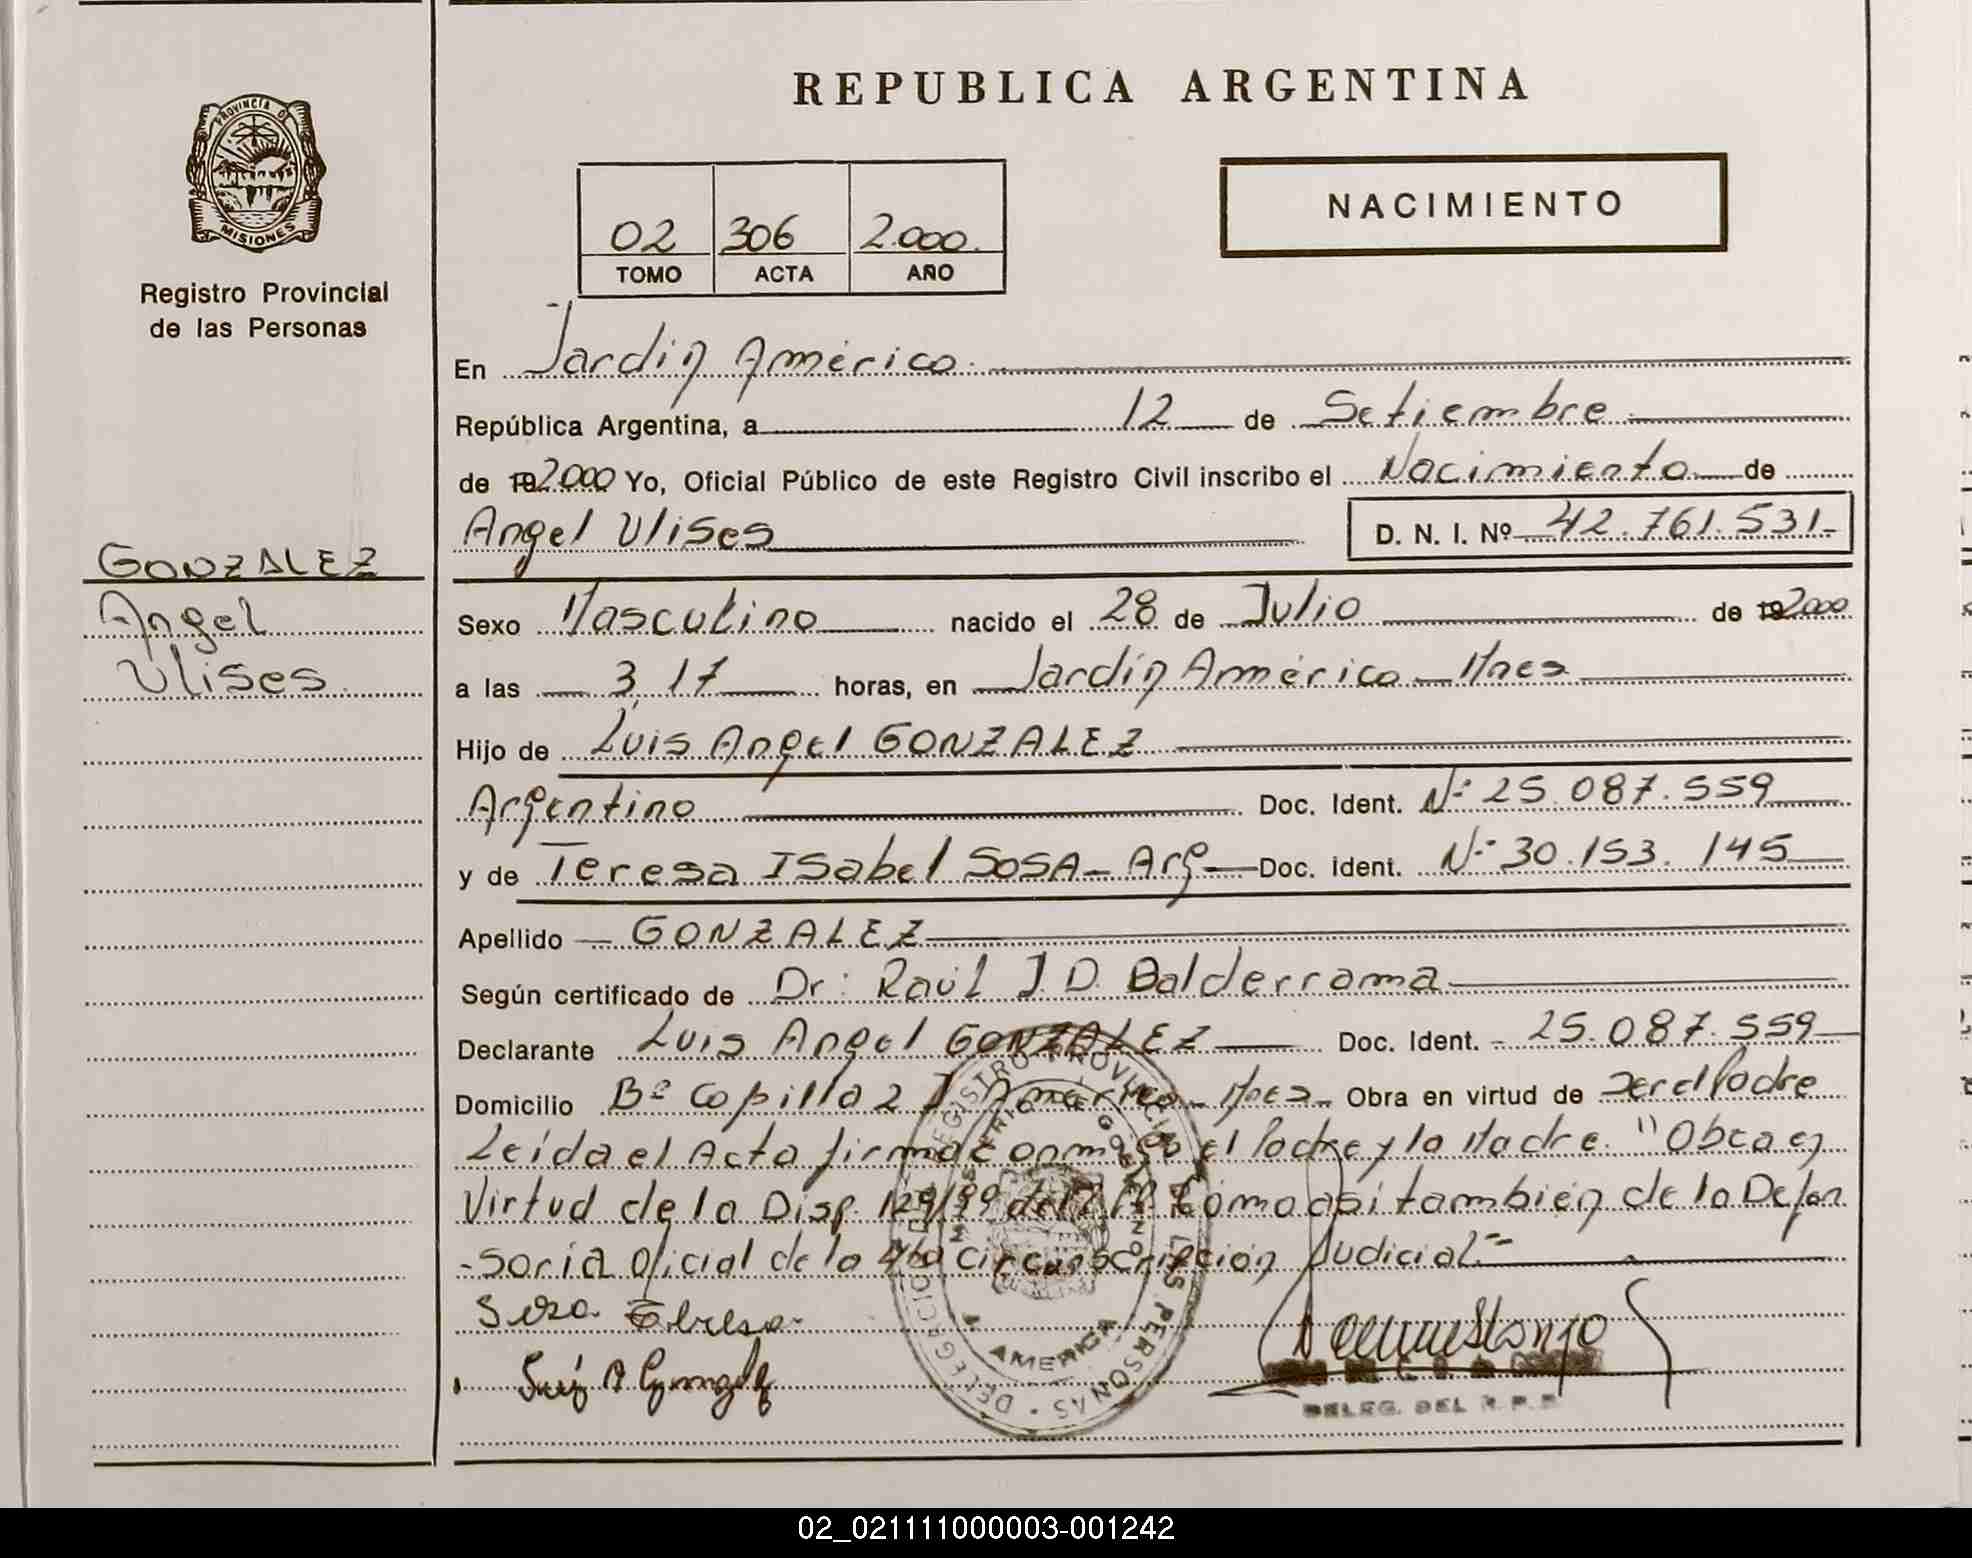 REPUBLICA ARGENTINA
PROVINCIA DE
MISIONES
Registro Provincial
de las Personas
02 306 2.000.
TOMO ACTA AÑO
NACIMIENTO
En Jardin América.
República Argentina, a 12 de Setiembre
de 192000 Yo, Oficial Público de este Registro Civil inscribo el Nacimiento de
Angel Ulises D. N. I. Nº 42.761.531-
GONZALEZ
Angel
Ulises
Sexo Masculino nacido el 28 de Julio de 192000
a las 3,17 horas, en Jardin América - Mnes
Hijo de Luis Angel GONZALEZ
Argentino Doc. Ident. Nº 25.087.559
y de Teresa ISabel SOSA - Arg - Doc. Ident. Nº 30.153.145
Apellido GONZALEZ
Según certificado de Dr: Raúl J. D. Balderrama
Declarante Luis Angel GONZALEZ Doc. Ident. - 25.087.559
Domicilio Bº Copilla 2 J. América - Mnes - Obra en virtud de ser el Padre
Leída el Acta firma conmigo el Padre y la Madre. "Obra en
Virtud de la Disp. 129/99 del Como así también de la Defen
-soria Oficial de la 4ta Circunscripción Judicial.-
Sosa Teresa
Luis A Gonzalez
DELEG. DEL R. P. P.
REGISTRO PROVINCIAL DE LAS PERSONAS · DELEGACION
AMERICA
02_021111000003-001242